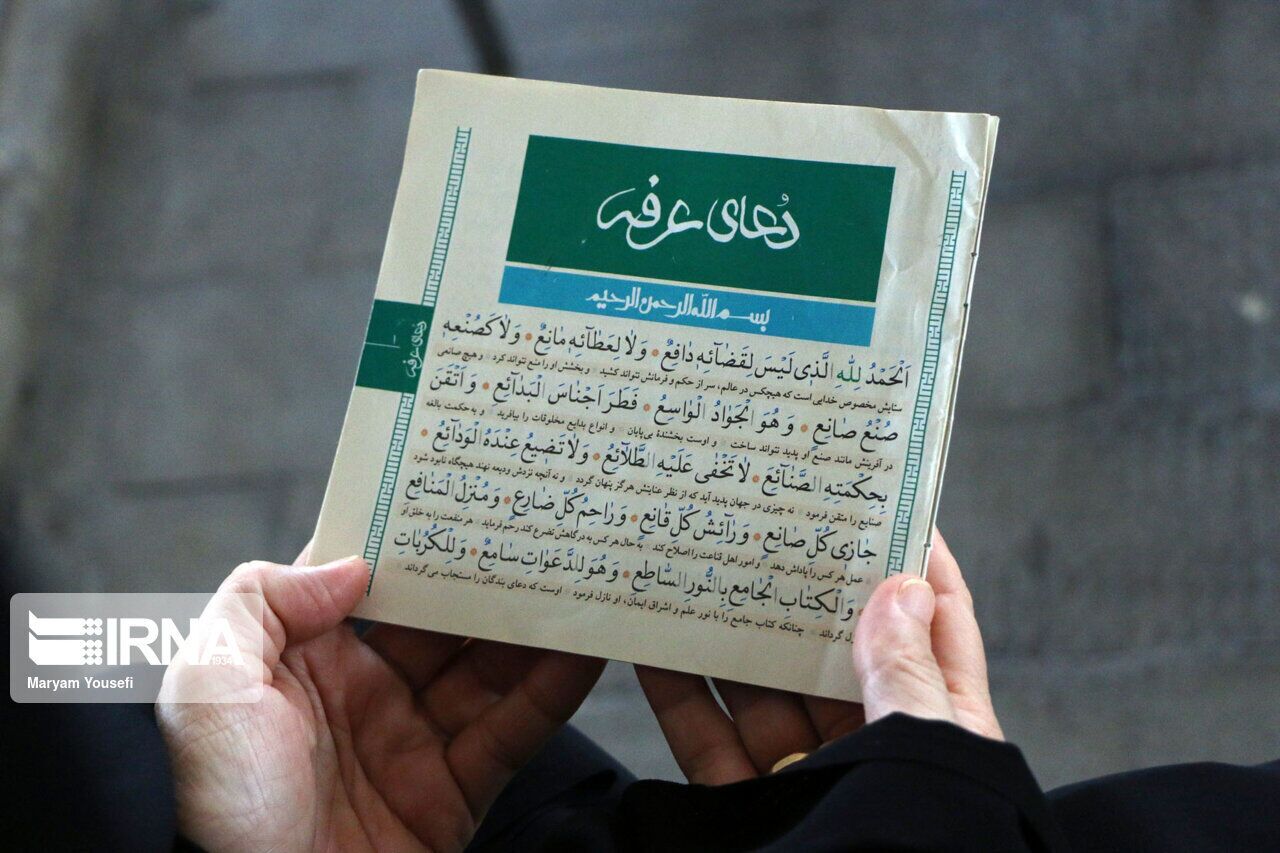 دُعای عرفه
بسم الله الرحمن الرحیم
اَلْحَمْدُ لِلّٰهِ الَّذی لَیْسَ لِقَضٰآئِهِ دٰافِعٌ * وَ لٰا لِعَطٰآئِهِ مٰانِعٌ * وَ لٰا کَصُنْعِهِ
ستایش مخصوص خدایی است که هیچکس در عالم، سر از حکم و فرمانش نتواند کشید * و بخشش او را منع نتواند کرد * و هیچ صانعی
صُنْعُ صٰانِعٍ * وَ هُوَ الْجَوٰادُ الْوٰاسِعُ * فَطَرَ اَجْنٰاسَ الْبَدٰآئِعِ * وَ اَتْقَنَ
در آفرینش مانند صنع او پدید نتواند ساخت * و اوست بخشندهٔ بی‌پایان * و انواع بدایع مخلوقات را بیافرید * و به حکمت بالغه
بِحِکْمَتِهِ الصَّنٰآئِعَ * لٰا تَخْفٰی عَلَیْهِ الطَّلٰآئِعُ * وَ لٰا تَضیعُ عِنْدَهُ الْوَدٰآئِعُ *
صنایع را متقن فرمود * نه چیزی در جهان پدید آید که از نظر عنایتش هرگز پنهان گردد * و نه آنچه نزدش ودیعه نهند هیچگاه نابود شود
جٰازی کُلِّ صٰانِعٍ * وَ رٰآئِشُ کُلِّ قٰانِعٍ * وَ رٰاحِمُ کُلِّ ضٰارِعٍ * وَ مُنْزِلُ الْمَنٰافِعِ
عمل هر کس را پاداش دهد * و امور اهل قناعت را اصلاح کند * به حال هر کس به درگاهش تضرع کند رحم فرماید * هر منفعت را به خلق او
* وَ الْکِتٰابِ الْجٰامِعِ بِالنُّورِ السّٰاطِعِ * وَ هُوَ لِلدَّعَوٰاتِ سٰامِعٌ * وَ لِلْکُرُبٰاتِ
گرداند * چنانکه کتاب جامع را با نور علم و اشراق ایمان، او نازل فرمود * اوست که دعای بندگان را مستجاب می‌گرداند
دعای عرفه
۱
IRNA
1934
Maryam Yousefi